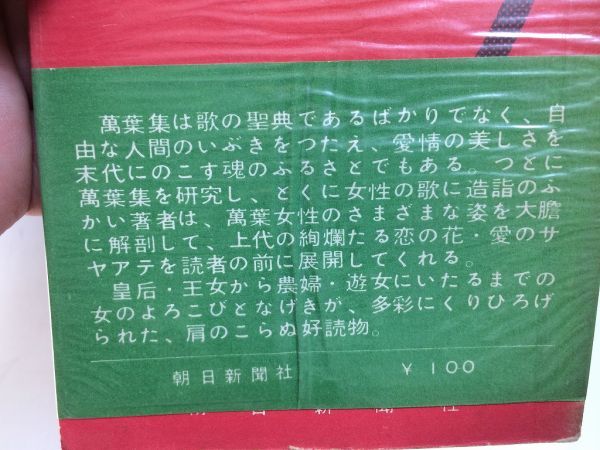 萬葉集は歌の聖典であるばかりでなく、自
由な人間のいぶきをつたえ、愛情の美しさを
末代にのこす魂のふるさとでもある。つとに
萬葉集を研究し、とくに女性の歌に造詣のふ
かい著者は、萬葉女性のさまざまな姿を大膽
に解剖して、上代の絢爛たる恋の花・愛のサ
ヤアテを読者の前に展開してくれる。
皇后・王女から農婦・遊女にいたるまでの
女のよろこびとなげきが、多彩にくりひろげ
られた、肩のこらぬ好読物。
朝日新聞社 ¥100
朝日新聞社